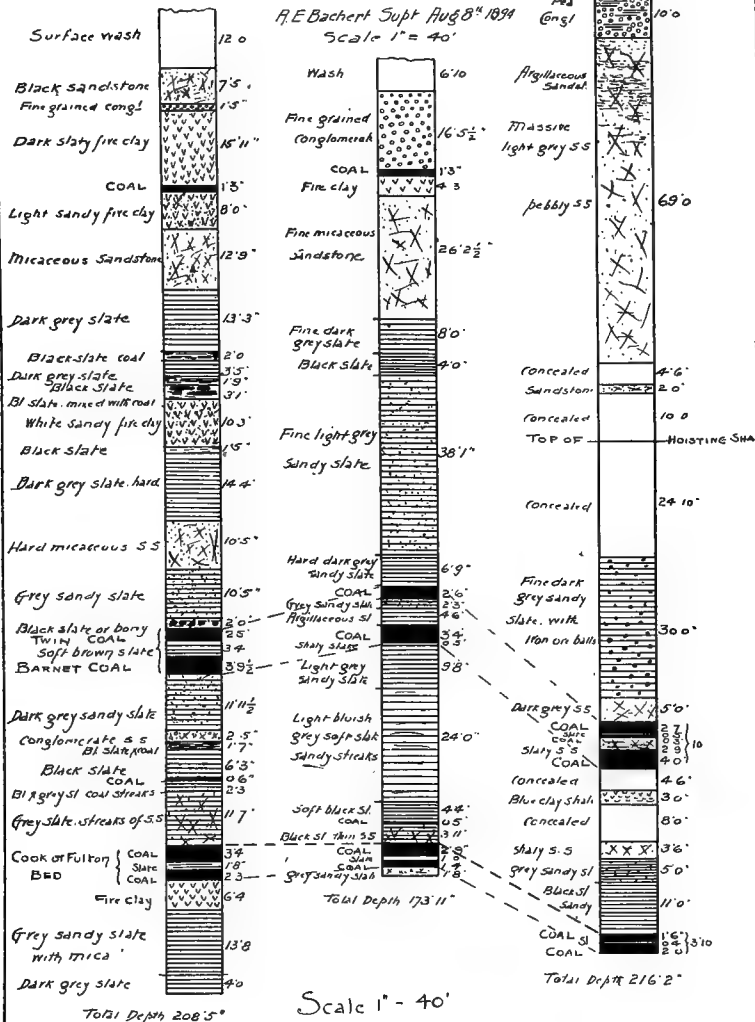 A.E Bachert Supt Aug 8th 1894
Scale 1" = 40'
Surface wash 12 0
Black sandstone 7'5"
Fine grained congl 1'5"
Dark slaty fire clay 15'11"
COAL 1'3"
Light sandy fire clay 8'0"
Micaceous Sandstone 12'9"
Dark grey slate 13'3"
Black slate coal 2'0
Dark grey slate 3'5"
Black Slate 1'9"
Bl slate. mixed with coal 3'1"
White sandy fire clay 10'3"
Black slate 1'5"
Dark grey slate. hard 14'4"
Hard micaceous S S 10'5"
Grey sandy slate 10'5"
Black slate or bony 2'0"
TWIN COAL 2'5"
Soft brown slate 3'4
BARNET COAL 3'9½
Dark grey sandy slate 11'11½
Conglomerate S S 2'5"
Bl slate & coal 1'7"
Black slate 6'3"
COAL 0'6"
Bl & grey sl coal streaks 2'3
Grey slate. streaks of S.S 11'7"
Cook or Fulton BED
COAL 3'4
Slate 1'8"
COAL 2'3
Fire clay 6'4
Grey sandy slate
with mica 13'8
Dark grey slate 4'0
Total Depth 208'5"
Wash 6'10
Fine grained
Conglomerate 16'5½"
COAL 1'3"
Fire clay 4'3
Fine micaceous
Sandstone 26'2½"
Fine dark
grey slate 8'0"
Black slate 4'0"
Fine light grey
Sandy slate 38'1"
Hard dark grey
sandy slate 6'9"
COAL 2'6"
Grey Sandy slate 2'3"
Argillaceous sl 4'6"
COAL 3'4
Shaly slate 0'5"
Light grey
sandy slate 9'8"
Light bluish
grey soft slate
sandy streaks 24'0"
Soft black sl. 4'4
COAL 0'5
Black sl thin S S 3'11"
COAL
Slate
COAL
grey sandy slate
Total Depth 173'11"
Scale 1" - 40'
Congl 10'0
Argillaceous
Sandst.
Massive
light grey S S
pebbly S S 69'0
Concealed 4'6"
Sandstone 2'0"
Concealed 10 0
TOP OF HOISTING SHA
Concealed 24 10"
Fine dark
grey sandy
Slate. with
Iron ore balls 30'0"
Dark grey S S 5'0"
COAL 2'7
Slate
COAL
Slaty S S 2'9
COAL 4'0
10
Concealed 4'6
Blue clay shale 3'0"
Concealed 8'0"
Shaly S.S 3'6"
grey sandy sl 5'0"
Black sl
Sandy 11'0"
COAL 1'6"
Sl 0'4
COAL 2'0
3'10
Total Depth 216'2"